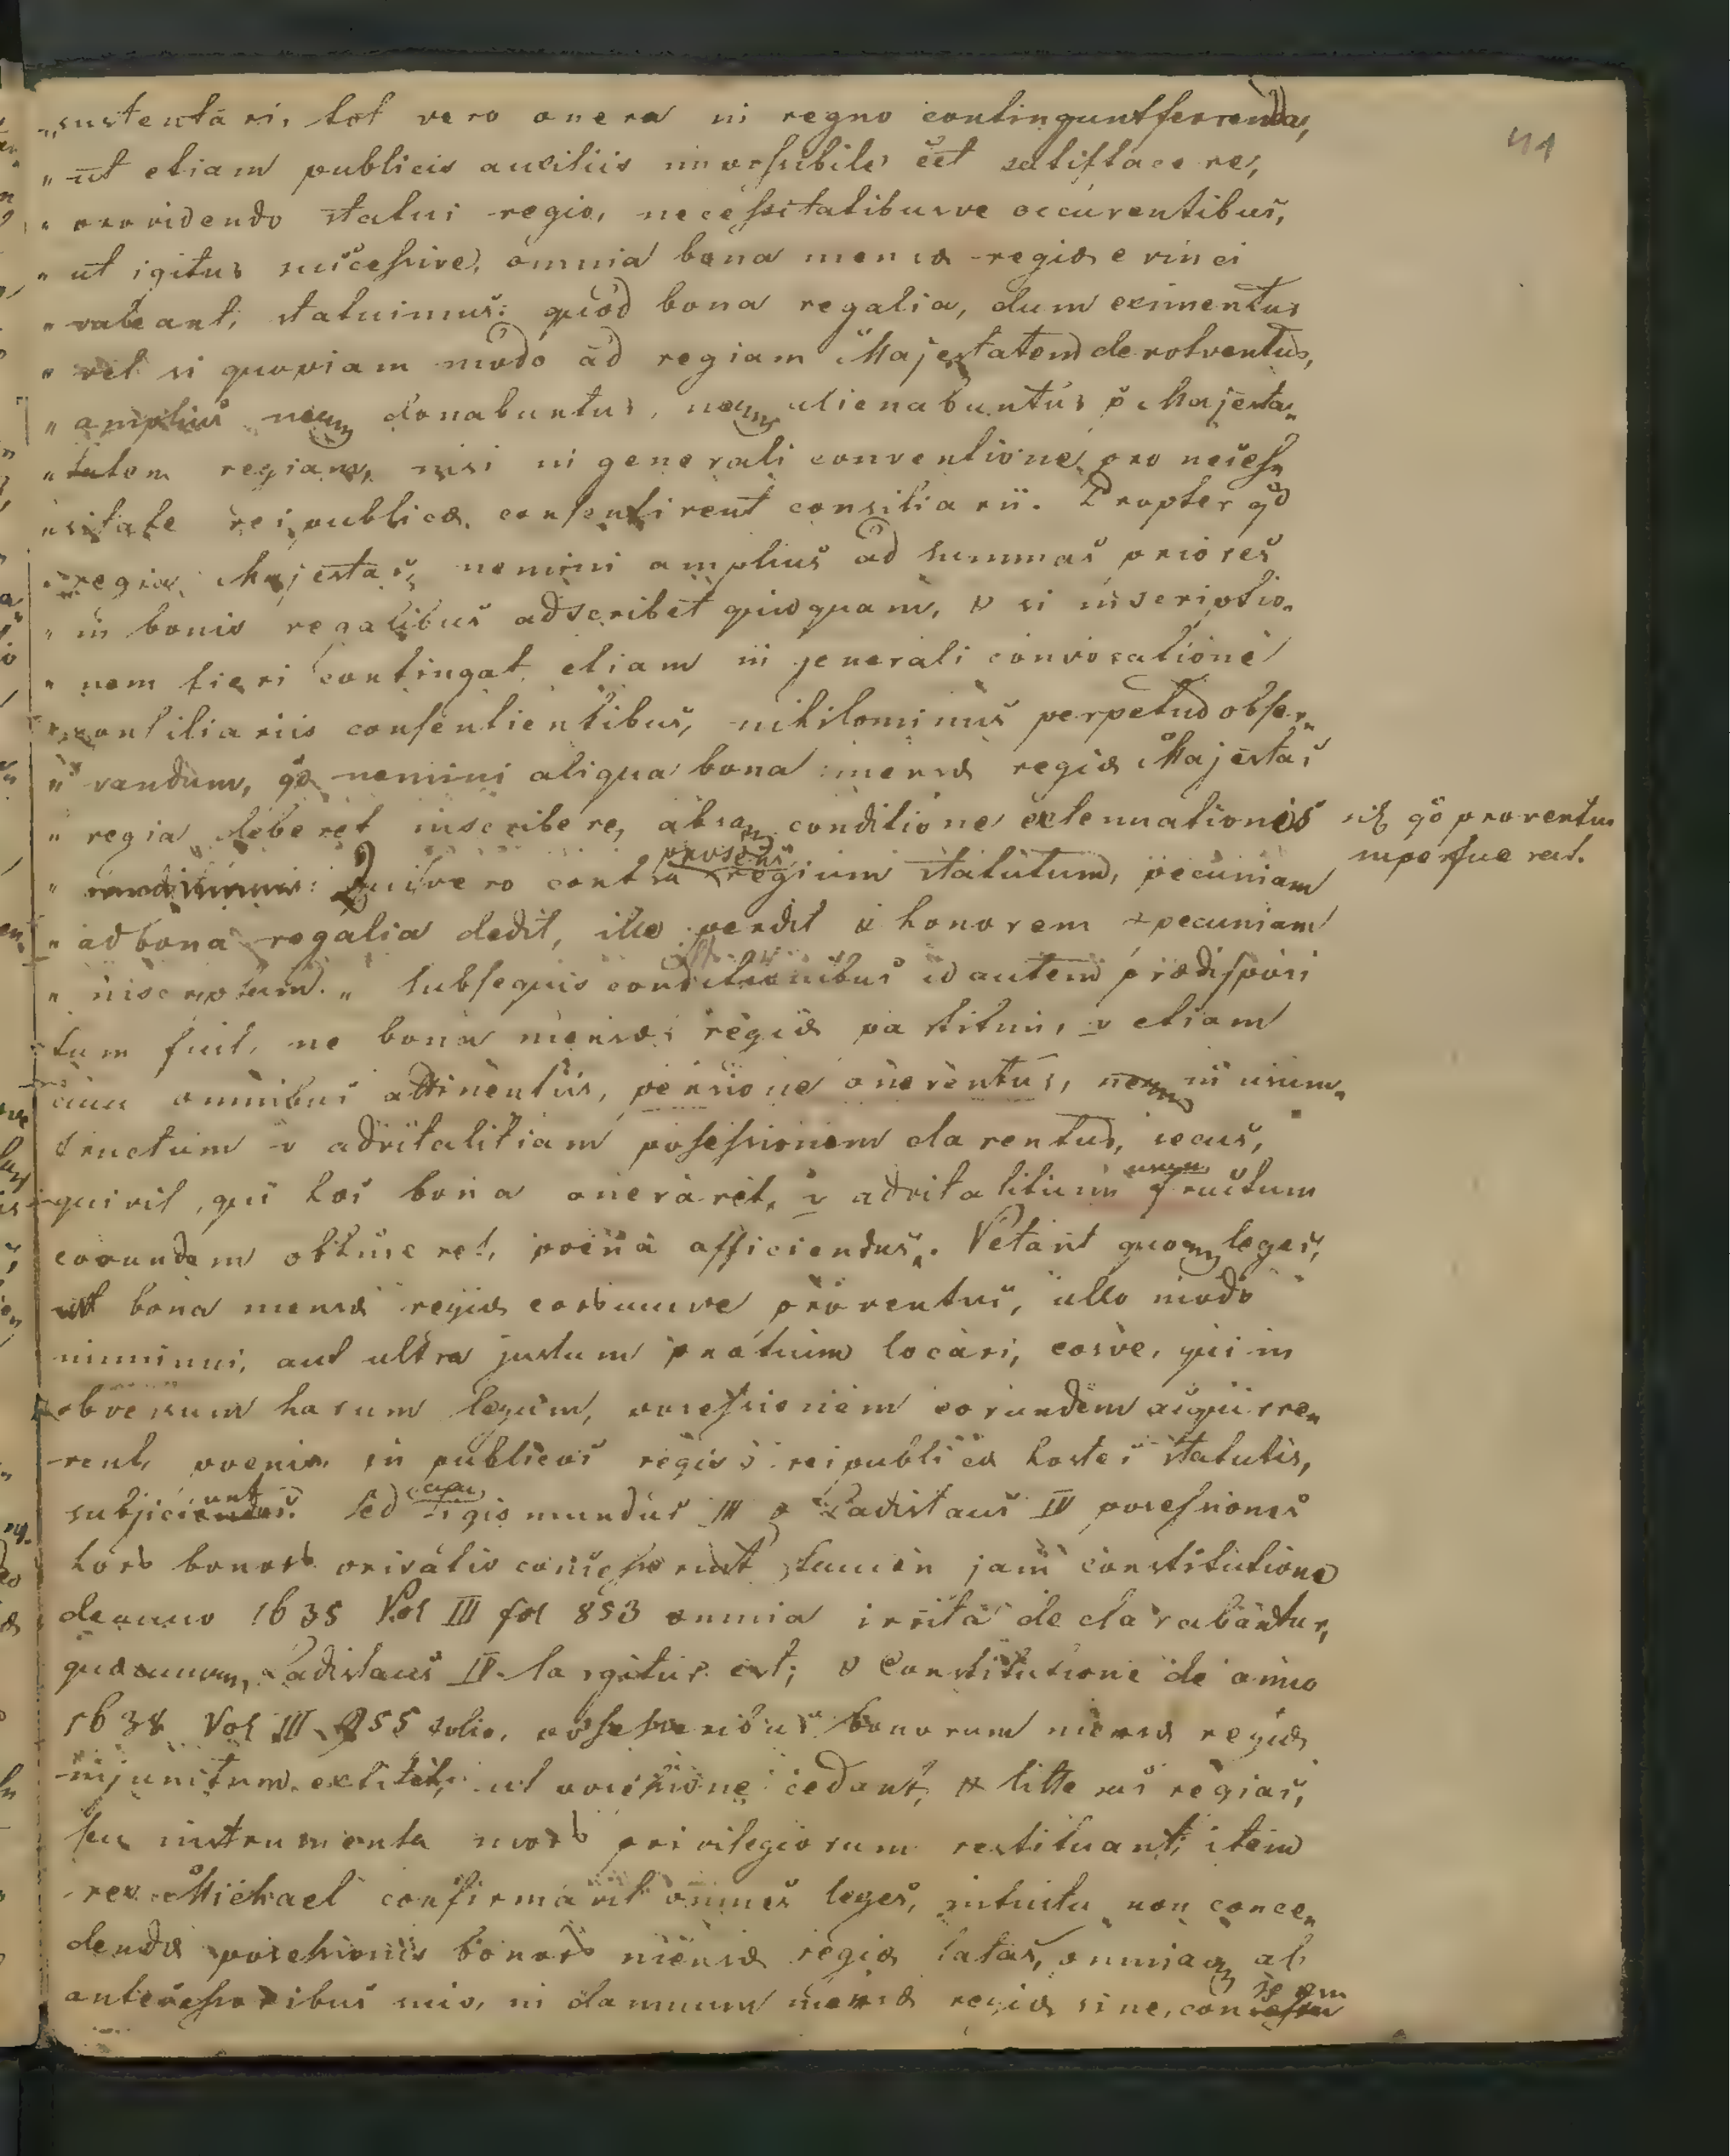 41
„sustentari, tot vero onera in regno contingunt ferrenda,
„ ut etiam publicis auxiliis impossibile est satisfacere,
„ providendo statui regio, necessitatibusve occurentibus,
„ ut igitur successive, omnia bona mensæ regiæ evinci
„ valeant, statuimus: quod bona regalia, dum eximentur
„ vel si quopiam modo ad regiam Majestatem devolventur,
„ amplius neque donabuntur, neque alienabuntur p Majesta„
„ tatem regiam, nisi in generali conventione, pro necess„
„ sitate reipublicæ, consentirent consiliarii. Propter qd
„ regia Majestas, nemini amplius ad summas priores
„ in bonis regalibus adscribet quidquam, & si inscriptio„
„ nem fieri contingat, etiam in generali convocatione
„ consiliariis consentientibus, nihilominus perpetuo obser„
„ vandum, qd nemini aliqua bona mensæ regiæ Majestas
„ regia deberet inscribere, absque conditione extenuationis
sit qd proventus
superfuerat.
„ Quis vero contra præsens regium statutum, pecuniam
„ ad bona regalia dedit, ille perdit & honorem & pecuniam
„ inscriptam. „ Subsequis conditionibus id autem prædisposi
tum fuit, ne bona mensæ regiæ partitim, v etiam
cum omnibus attinentiis, pensione onerentur, neque in usum„
fructum v advitalitiam possessionem darentur, secus,
quivis, qui hos bona oneraret, v advitalitium usum fructum
eorundem obtineret, poena afficiendus. Vetant quoque leges,
ut bona mensæ regiæ eorumve proventus, ullo modo
imminui, aut ultra justum pretium locari, eosve, qui in
obversum harum legum, possessionem eorundem acquirre„
rent, poenis in publicos regis & reipublicæ hostes statutis,
subjiciunt. Sed cum Sigismundus III & Ladislaus IV possessiones
horb bonorb privatis concesserint, tamen jam constitutione
de anno 1635 Vol III fol 853 omnia irrita declarabantur,
quæcunque Ladislaus IV largitus est; & Constitutione de anno
1638 Vol III 955 folio, possessoribus bonorum mensæ regiæ
injunctum extitit, ut possessione cedant, & litteras regias,
seu instrumenta suorb privilegiorum restituant; item
rex Michael confirmavit omnes leges, intuitu non conce„
dendæ possessionis bonorb mensæ regiæ latas, omniaque ab
antecessoribus suis, in damnum mensæ regiæ sine, consensu